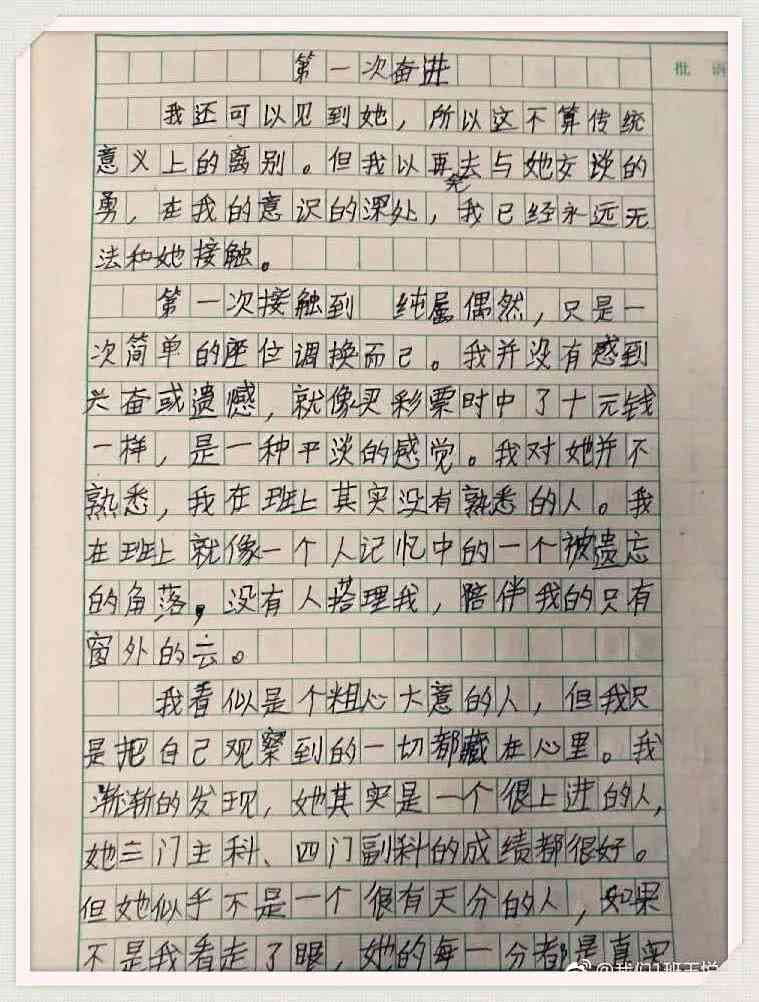 第一次奋进
批语
我还可以见到她，所以这不算传统
意义上的离别。但我以再去与她交谈的
勇，在我的意识的深处，我已经永远无
法和她接触。
第一次接触到 纯属偶然，只是一
次简单的座位调换而已。我并没有感到
兴奋或遗憾，就像买彩票时中了十元钱
一样，是一种平淡的感觉。我对她并不
熟悉，我在班上其实没有熟悉的人。我
在班上就像一个人记忆中的一个被遗忘
的角落，没有人搭理我，陪伴我的只有
窗外的云。
我看似是个粗心大意的人，但我只
是把自己观察到的一切都藏在心里。我
渐渐的发现，她其实是一个很上进的人，
她三门主科、四门副科的成绩都很好。
但她似乎不是一个很有天分的人，如果
不是我看走了眼，她的每一分都是真实
@我们1班王悦